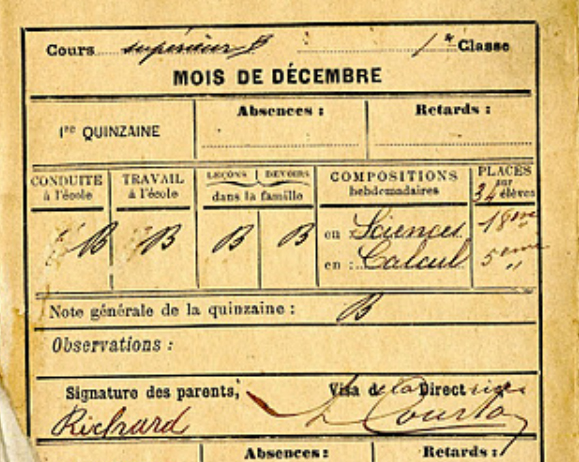 Cours supérieur B 1re Classe
MOIS DE DÉCEMBRE
1re QUINZAINE
Absences :
Retards :
CONDUITE à l'école
TRAVAIL à l'école
LEÇONS | DEVOIRS
dans la famille
COMPOSITIONS hebdomadaires
PLACES sur 34 élèves
B B B B
en Sciences 18eme
en : Calcul 5eme "
Note générale de la quinzaine : B
Observations :
Signature des parents,
Visa de la Directrice
Richard
Absences :
Retards :